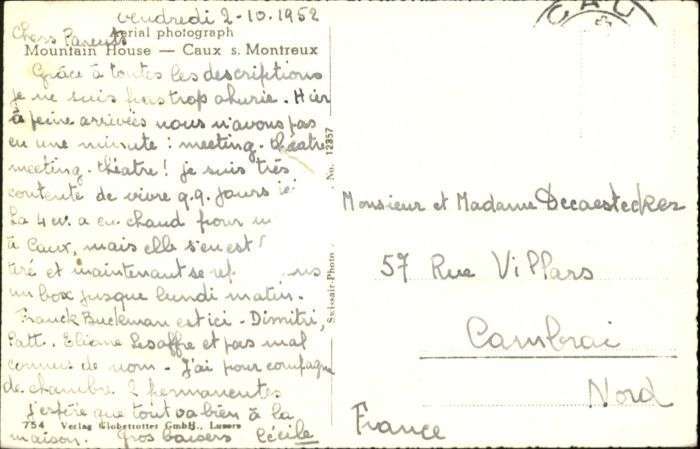 vendredi 2-10.1952
Chers Parents
Aerial photograph
Mountain House — Caux s. Montreux
Grâce à toutes les descriptions
je ne suis pas trop ahurie. Hier
à peine arrivées nous n'avons pas
eu une minute : meeting. théatre
meeting. théatre! je suis très
contente de vivre q.q. jours ici
La 4 cv. a eu chaud pour
à Caux, mais elle s'en est
tiré et maintenant se
un box jusque lundi matin.
Franck Buckman est ici - Dimitri,
Patt. Eliane Lesaffre et pas mal
connus de nom - J'ai pour compagne
de chambre 2 permanentes
J'espère que tout va bien à la
754 Verlag Globetrotter GmbH., Luzern
maison. Gros baisers Cécile
Swissair-Photo No. 12357
CAU
Monsieur et Madame Decaestecker
57 Rue Villars
Cambrai
Nord
France